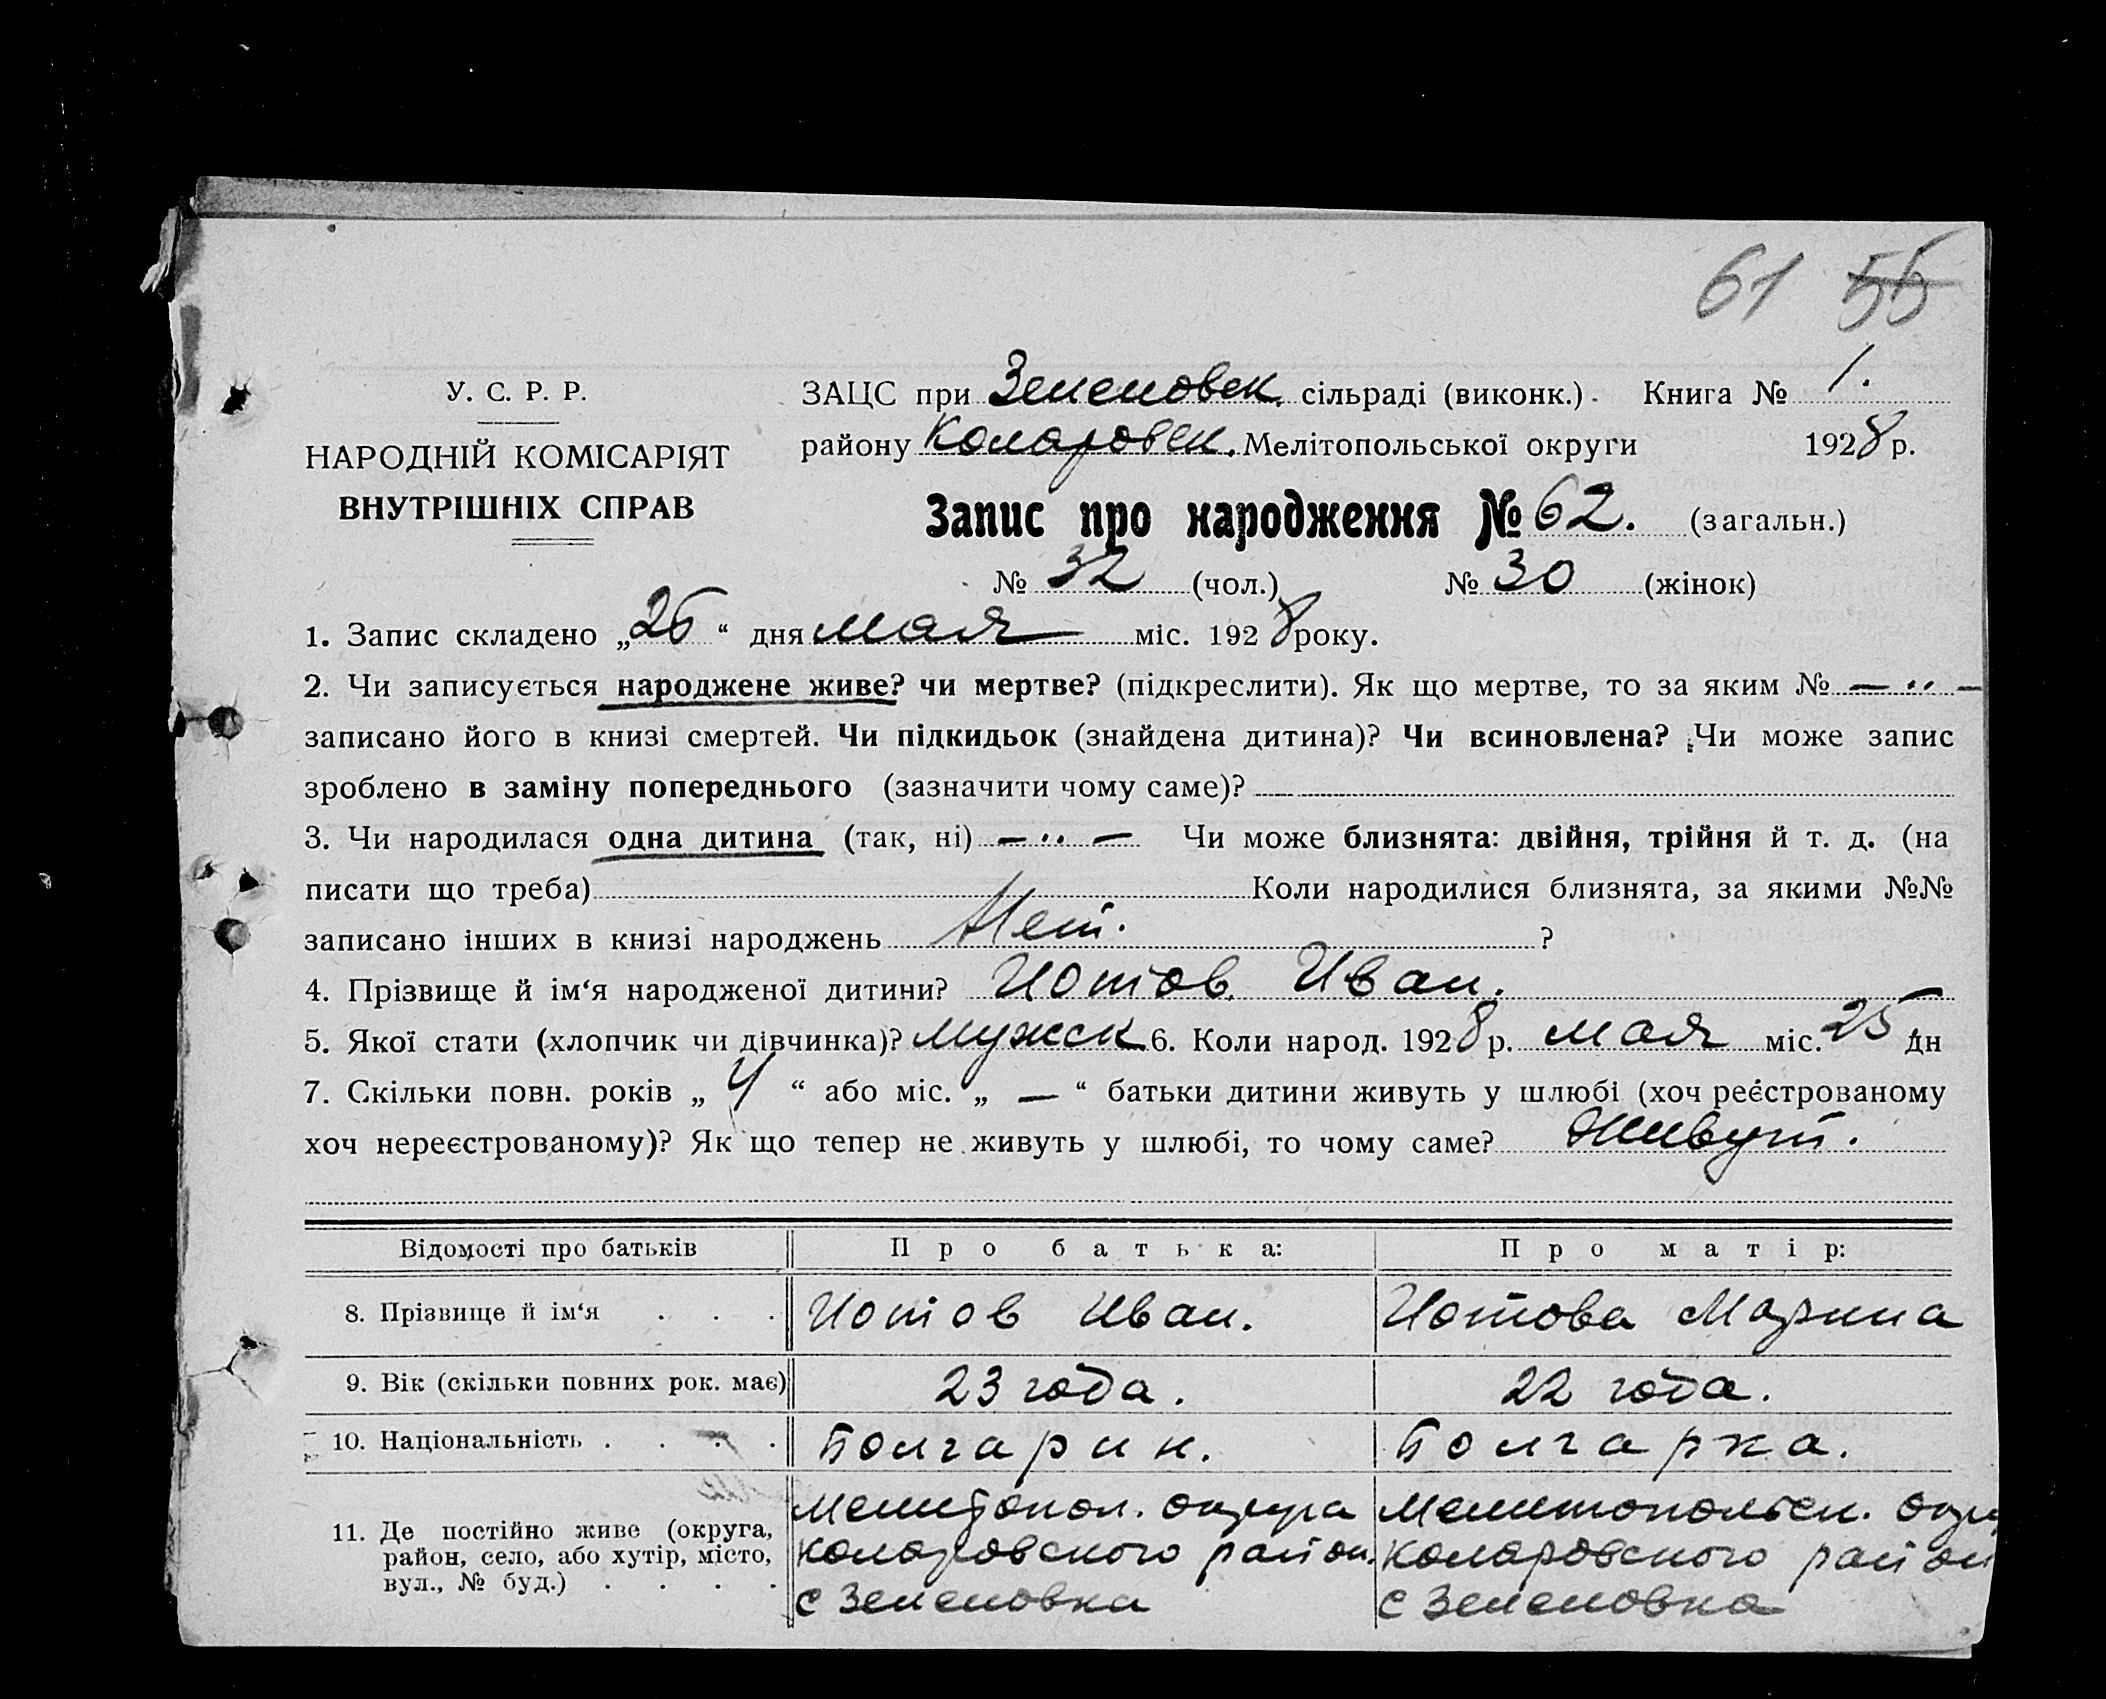 61 55
У. С. Р. Р.
НАРОДНІЙ КОМІСАРІЯТ
ВНУТРІШНІХ СПРАВ
ЗАЦС при Зеленовск. сільраді (виконк.). Книга № 1.
району Коларовск. Мелітопольської округи 1928 р.
Запис про народження № 62. (загальн.)
№ 32 (чол.) № 30 (жінок)
1. Запис складено „26“ дня мая міс. 1928 року.
2. Чи записується народжене живе? чи мертве? (підкреслити). Як що мертве, то за яким № — „ —
записано його в книзі смертей. Чи підкидьок (знайдена дитина)? Чи всиновлена? Чи може запис
зроблено в заміну попереднього (зазначити чому саме)?
3. Чи народилася одна дитина (так, ні) — „ — Чи може близнята: двійня, трійня й т. д. (на
писати що треба) Коли народилися близнята, за якими №№
записано інших в книзі народжень Нет. ?
4. Прізвище й ім‘я народженої дитини? Иотов Иван.
5. Якої стати (хлопчик чи дівчинка)? мужск 6. Коли народ. 1928 р. мая міс. 25 дн
7. Скільки повн. років „ 4 “ або міс. „ — “ батьки дитини живуть у шлюбі (хоч реєстрованому
хоч нереєстрованому)? Як що тепер не живуть у шлюбі, то чому саме? Живут.
Відомості про батьків Про батька: Про матір:
8. Прізвище й ім‘я . . . Иотов Иван. Иотова Марина
9. Вік (скільки повних рок. має) 23 года. 22 года.
10. Національність . . . . Болгарин. Болгарка.
11. Де постійно живе (округа, район, село, або хутір, місто, вул., № буд.) . . . .
Мелитопол. округа
Коларовского район.
с Зеленовка
Мелитопольск. окру
Коларовского район
с Зеленовка